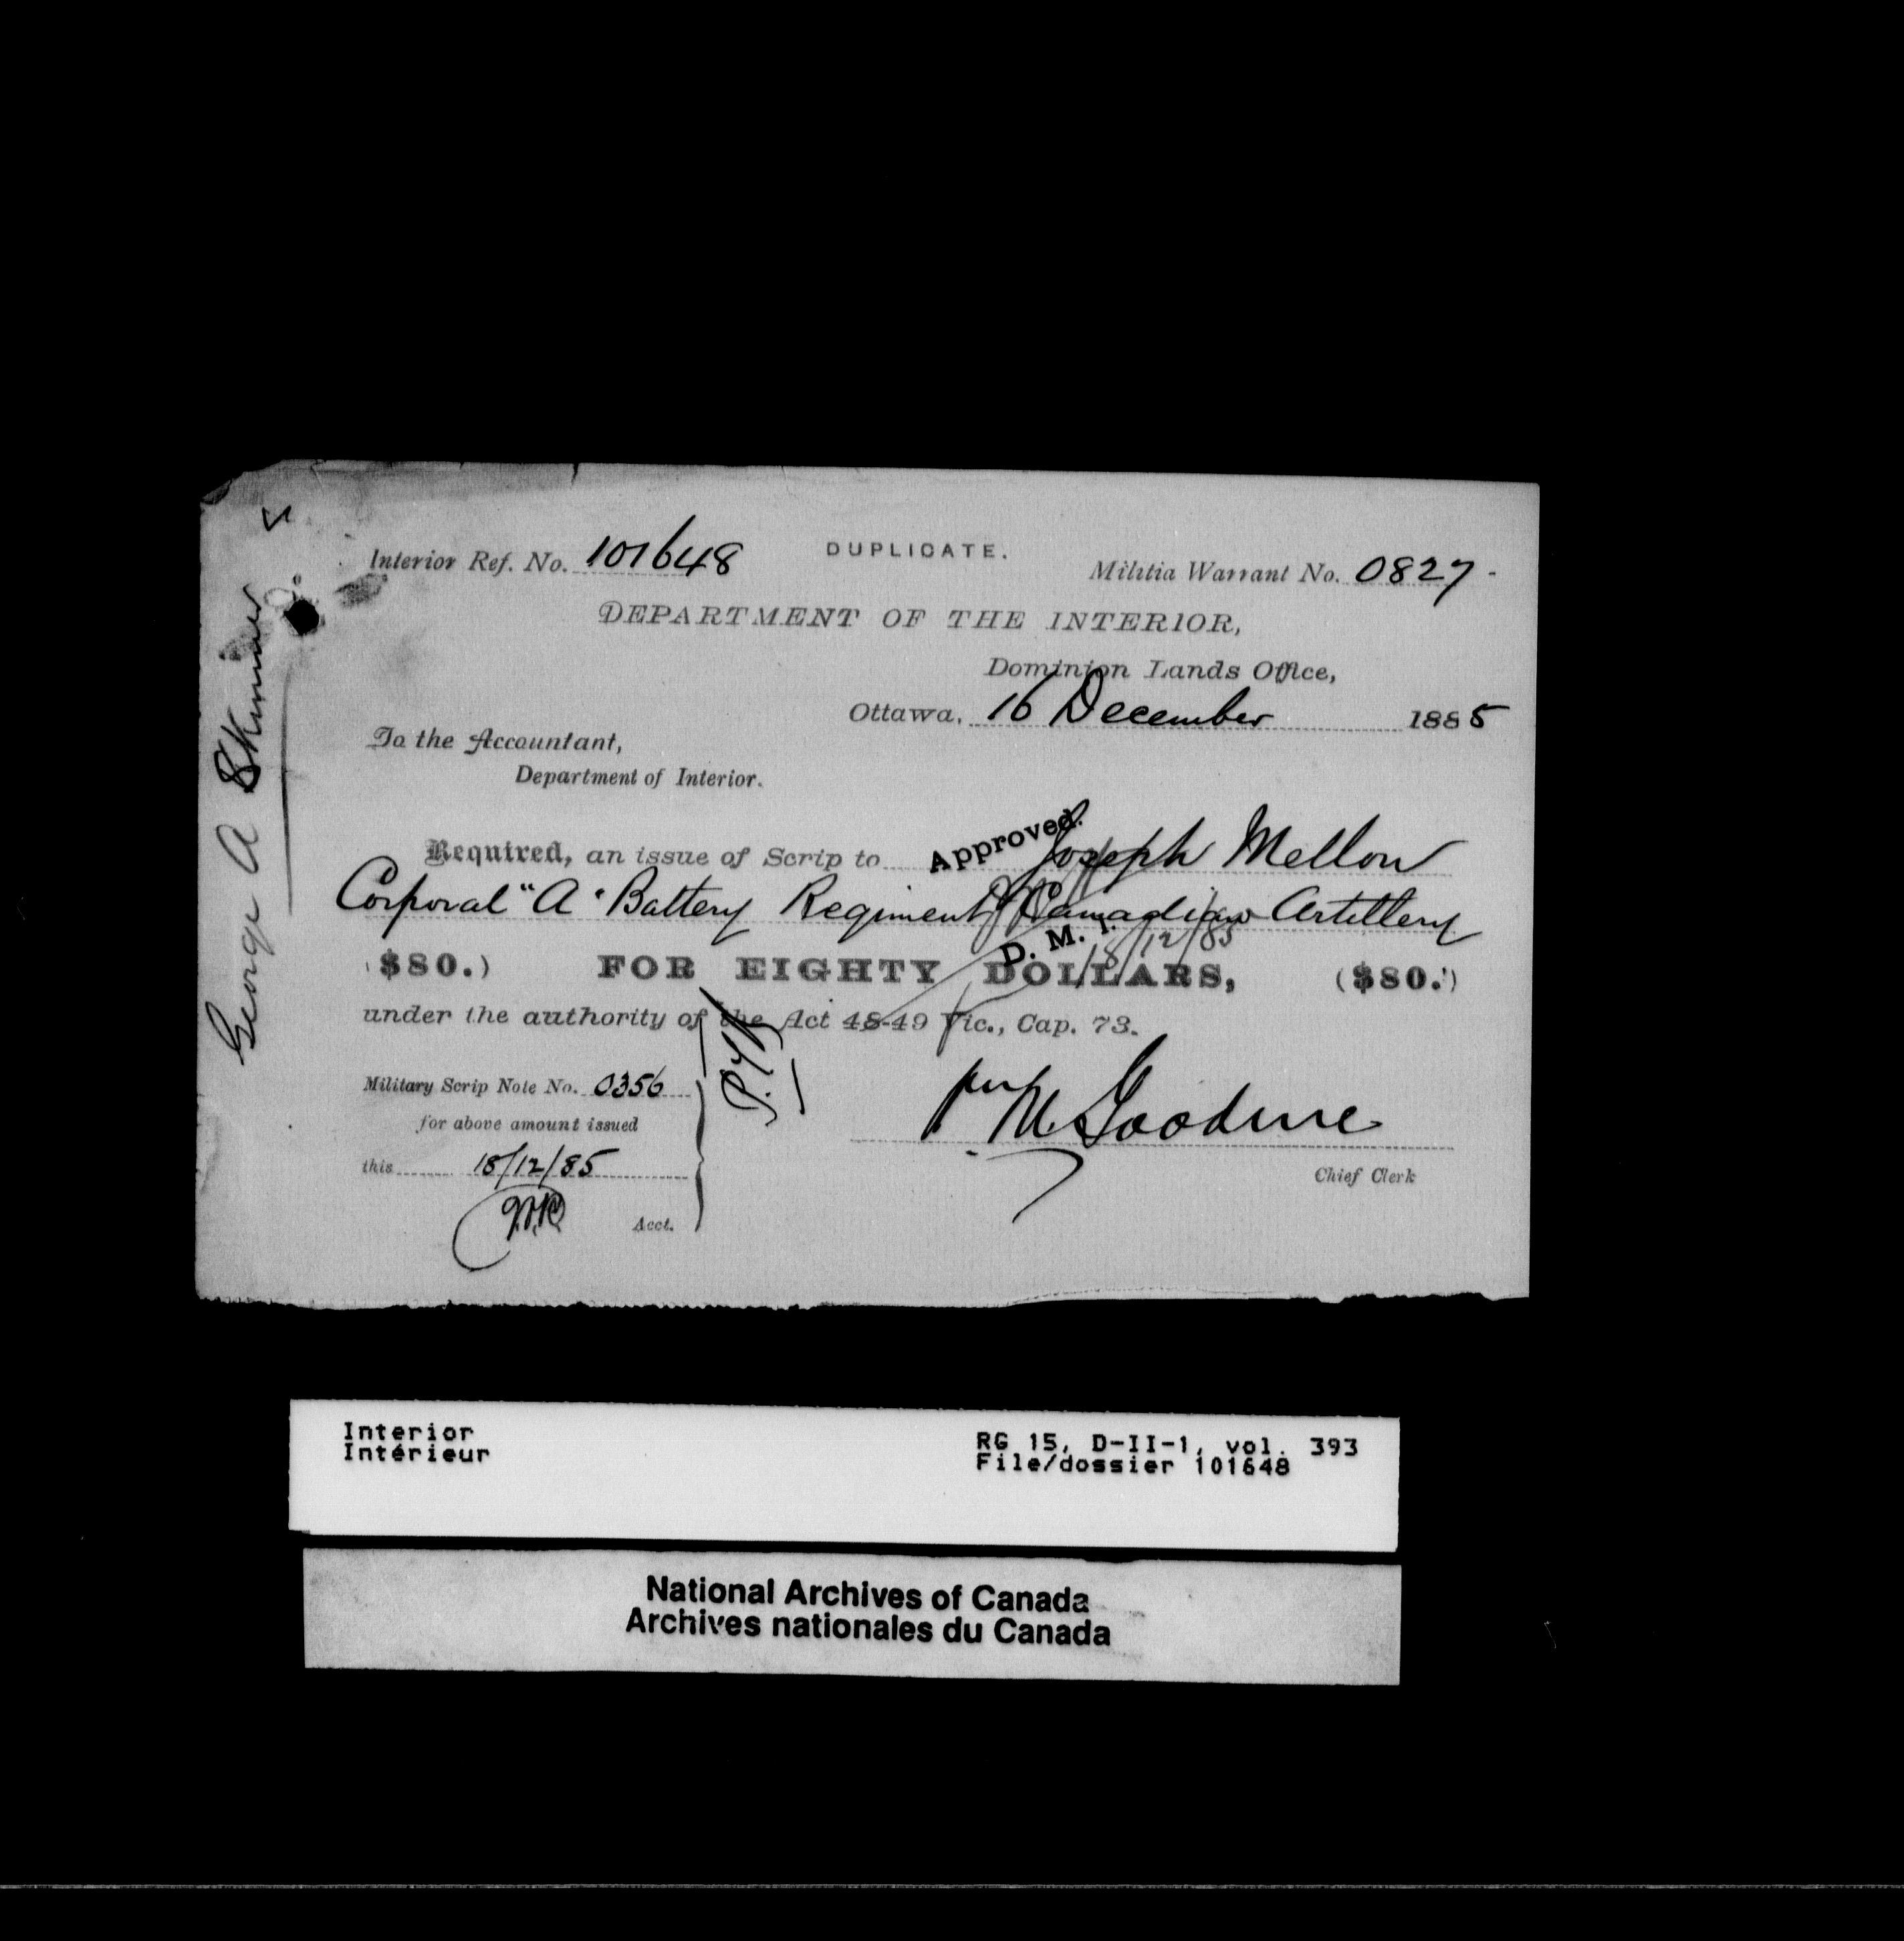 Interior Ref. No. 101648
DUPLICATE.
Militia Warrant No. 0827
DEPARTMENT OF THE INTERIOR,
Dominion Lands Office,
Ottawa, 16 December 1885
To the Accountant,
Department of Interior.
Approved.
Required, an issue of Scrip to Joseph Mellow
Corporal "A" Battery Regiment Canadian Artillery
D. M. I.
18/12/85
($80.) FOR EIGHTY DOLLARS, ($80.)
under the authority of the Act 48-49 Vic., Cap. 73.
Military Scrip Note No. 0356
for above amount issued
this 18/12/85
Acct.
per
Chief Clerk
George A Skinner
Interior
Intérieur
RG 15, D-II-1, vol. 393
File/dossier 101648
National Archives of Canada
Archives nationales du Canada